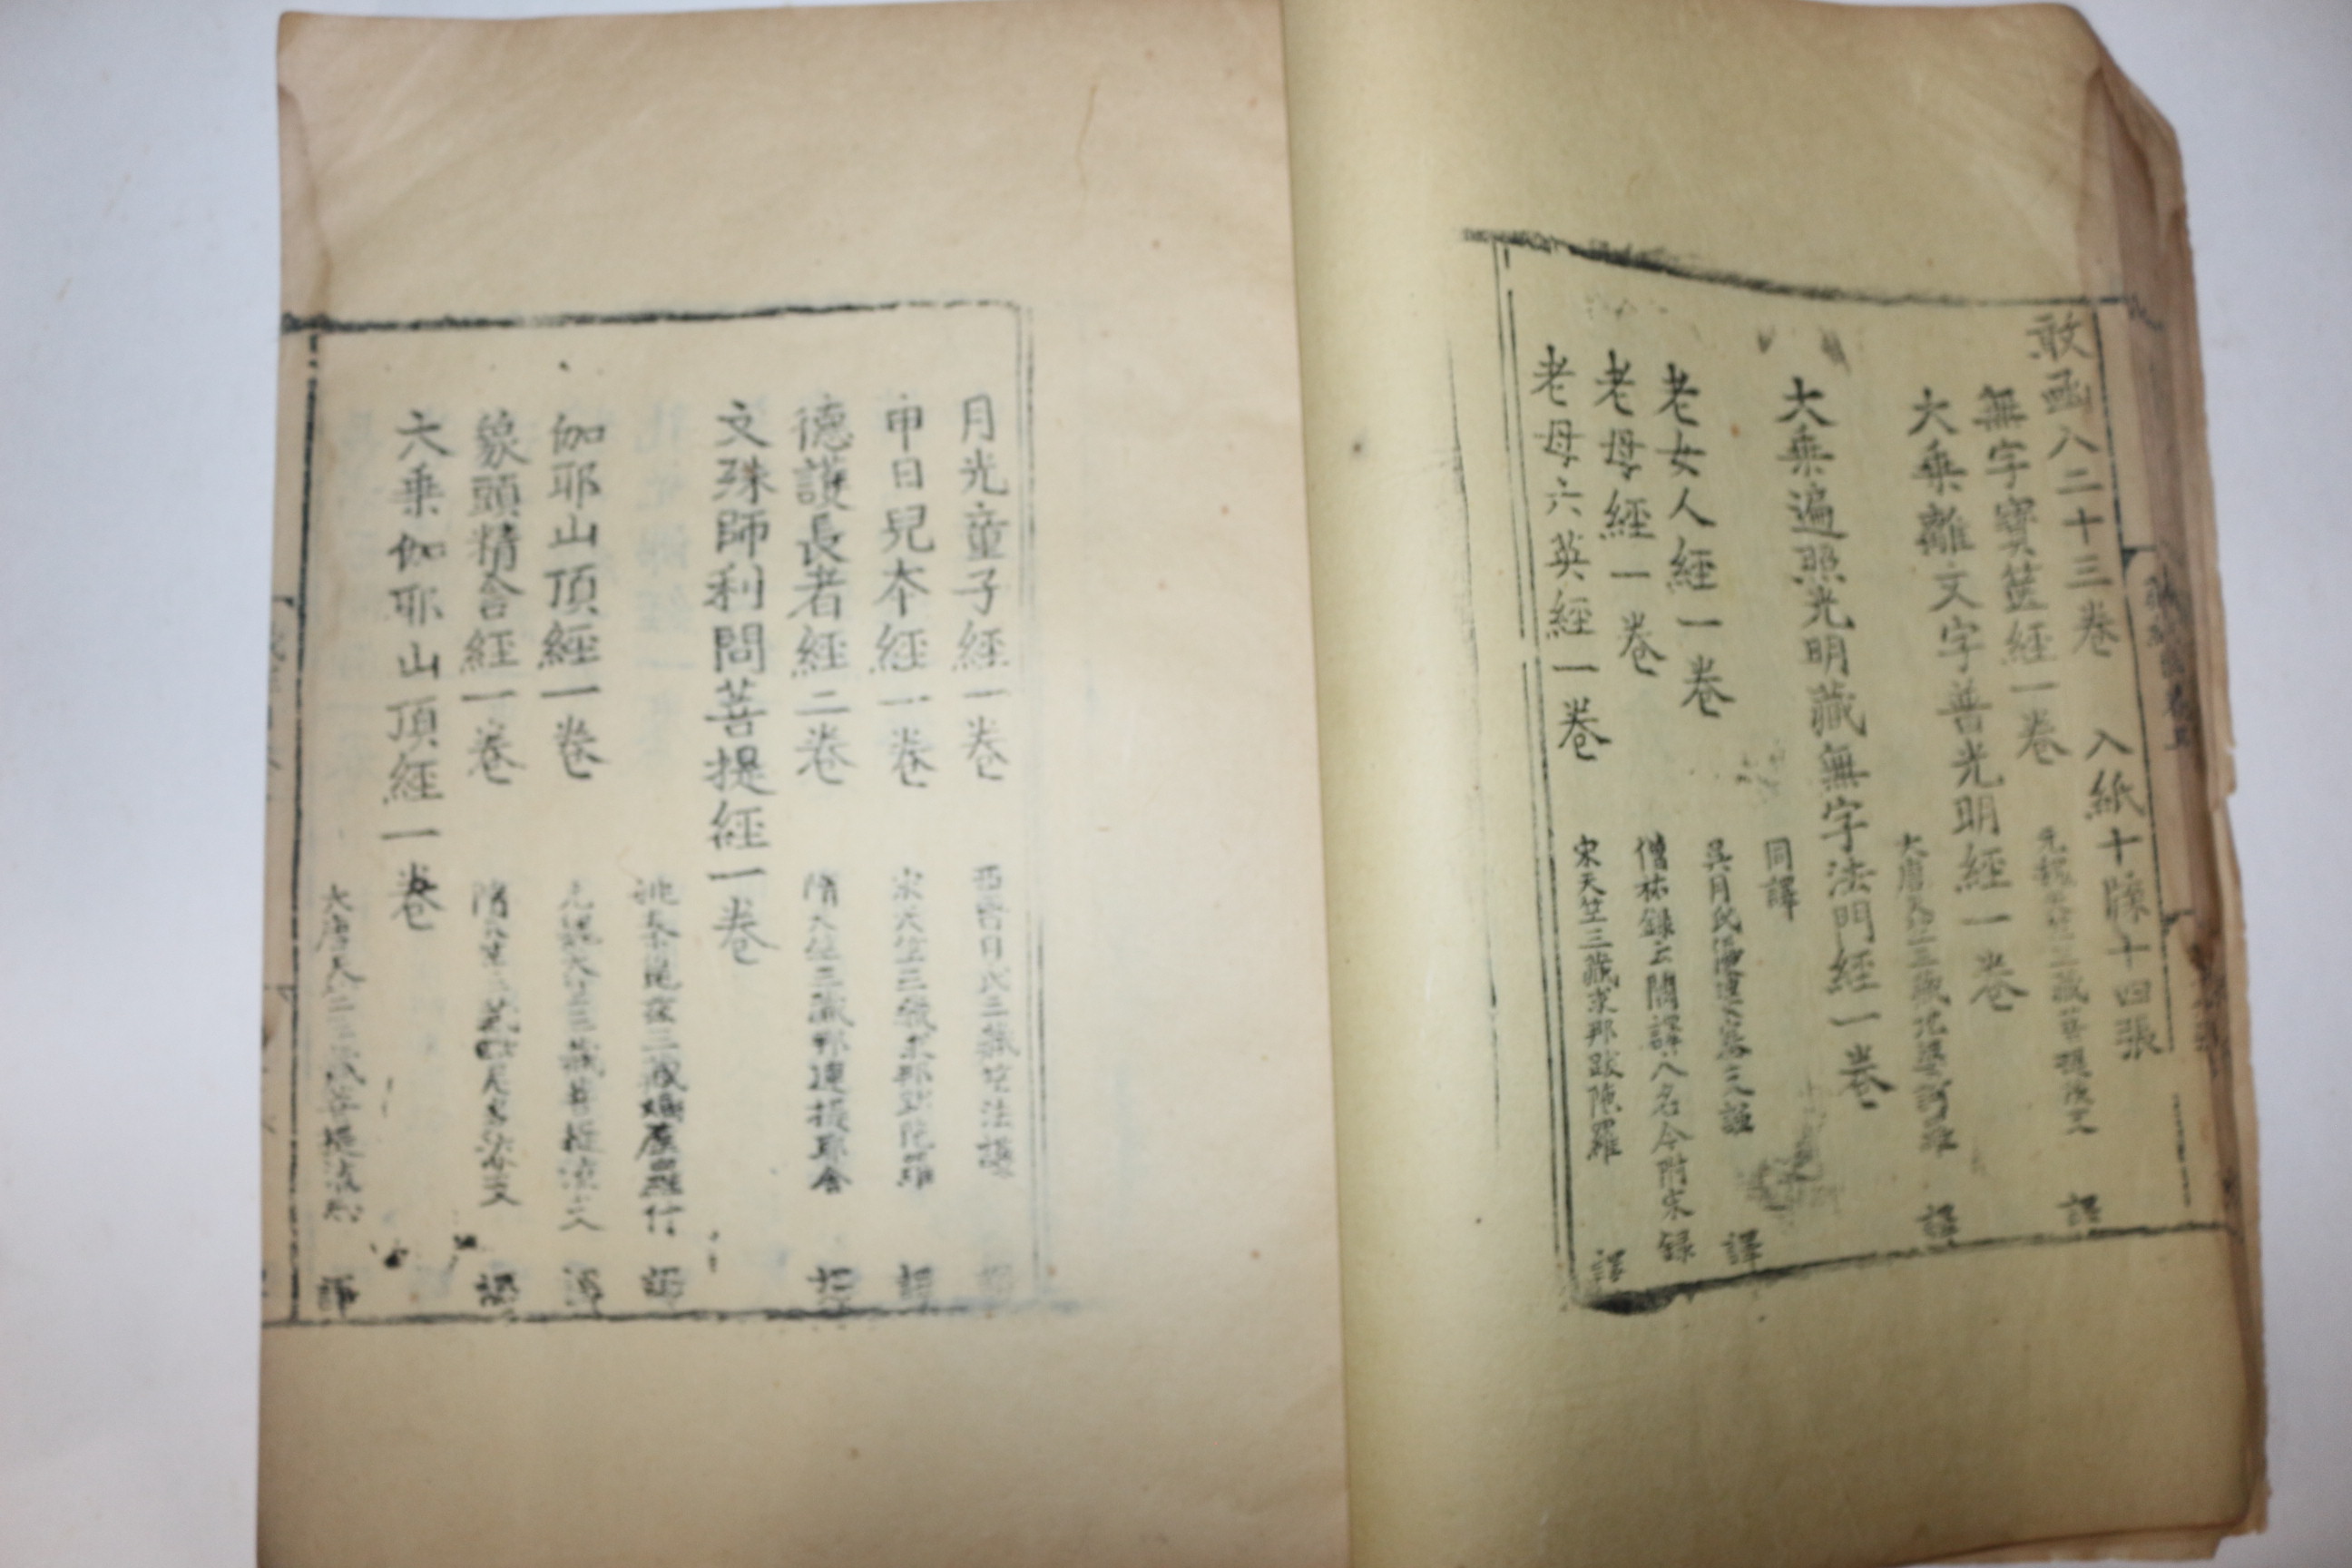 敢函入二十三卷　入紙十牒十四張
無字寶篋經一卷
元魏天竺三藏菩提流支　譯
大乘離文字普光明經一卷
大唐天竺三藏地婆訶羅　譯
大乘遍照光明藏無字法門經一卷
同譯
老女人經一卷
吳月氏優婆塞支謙　譯
老母經一卷
僧祐錄云闕譯人名今附宋錄
老母六英經一卷
宋天竺三藏求那跋陁羅　譯
月光童子經一卷
西晉月氏三藏竺法護　譯
申日兒本經一卷
宋天竺三藏求那跋陁羅　譯
德護長者經二卷
隋天竺三藏那連提耶舍　譯
文殊師利問菩提經一卷
姚秦龜茲三藏鳩摩羅什　譯
伽耶山頂經一卷
元魏天竺三藏菩提流支　譯
象頭精舍經一卷
隋天竺三藏毘尼多流支　譯
大乘伽耶山頂經一卷
大唐天竺三藏菩提流志　譯